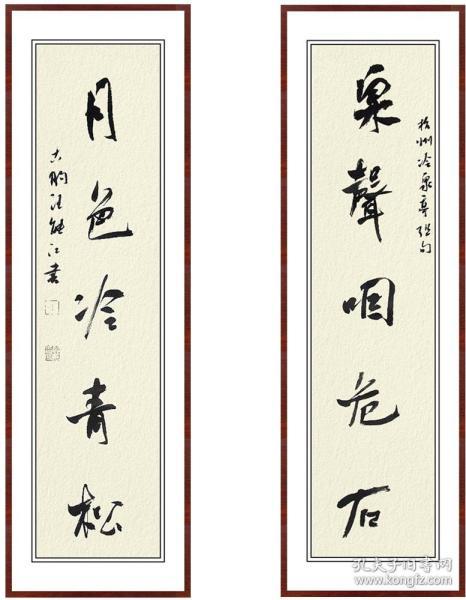 泉聲咽危石
杭州冷泉亭聯句
月色冷青松
古朐汪能江書
孔夫子旧书网
www.kongfz.com